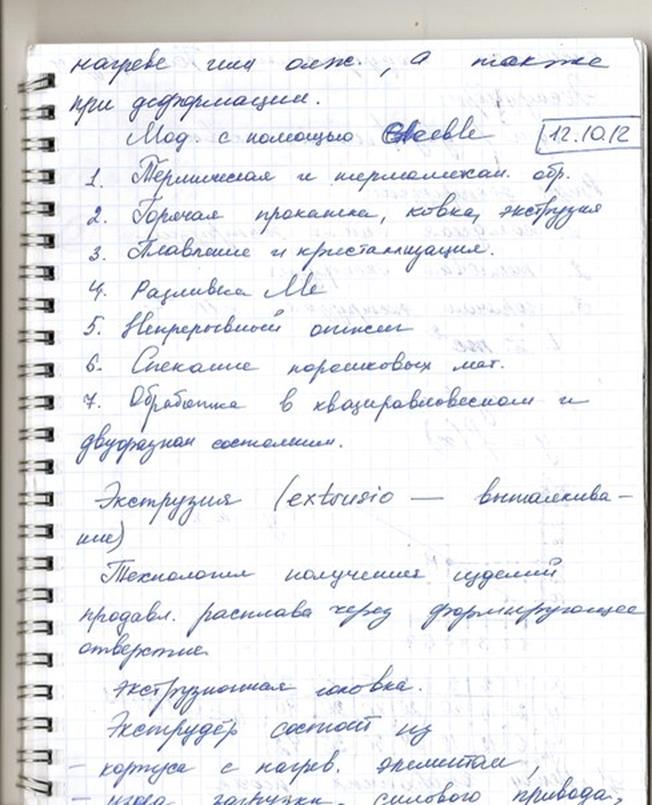 нагреве или олж., а также
при деформации.
Мод. с помощью Gleeble 12.10.12
1. Термическая и термомехан. обр.
2. Горячая прокатка, ковка, экструзия
3. Плавление и кристаллизация.
4. Разливка Ме
5. Непрерывный отжиг
6. Спекание порошковых мат.
7. Обработка в квазиравновесном и
двухфазном состоянии.
Экструзия (extrusio — выталкива-
ние)
Технология получения изделий
продавл. расплава через формирующее
отверстие
Экструзионная головка.
Экструдер состоит из
- корпуса с нагрев. элементам,
- узла загрузки, силового привода,